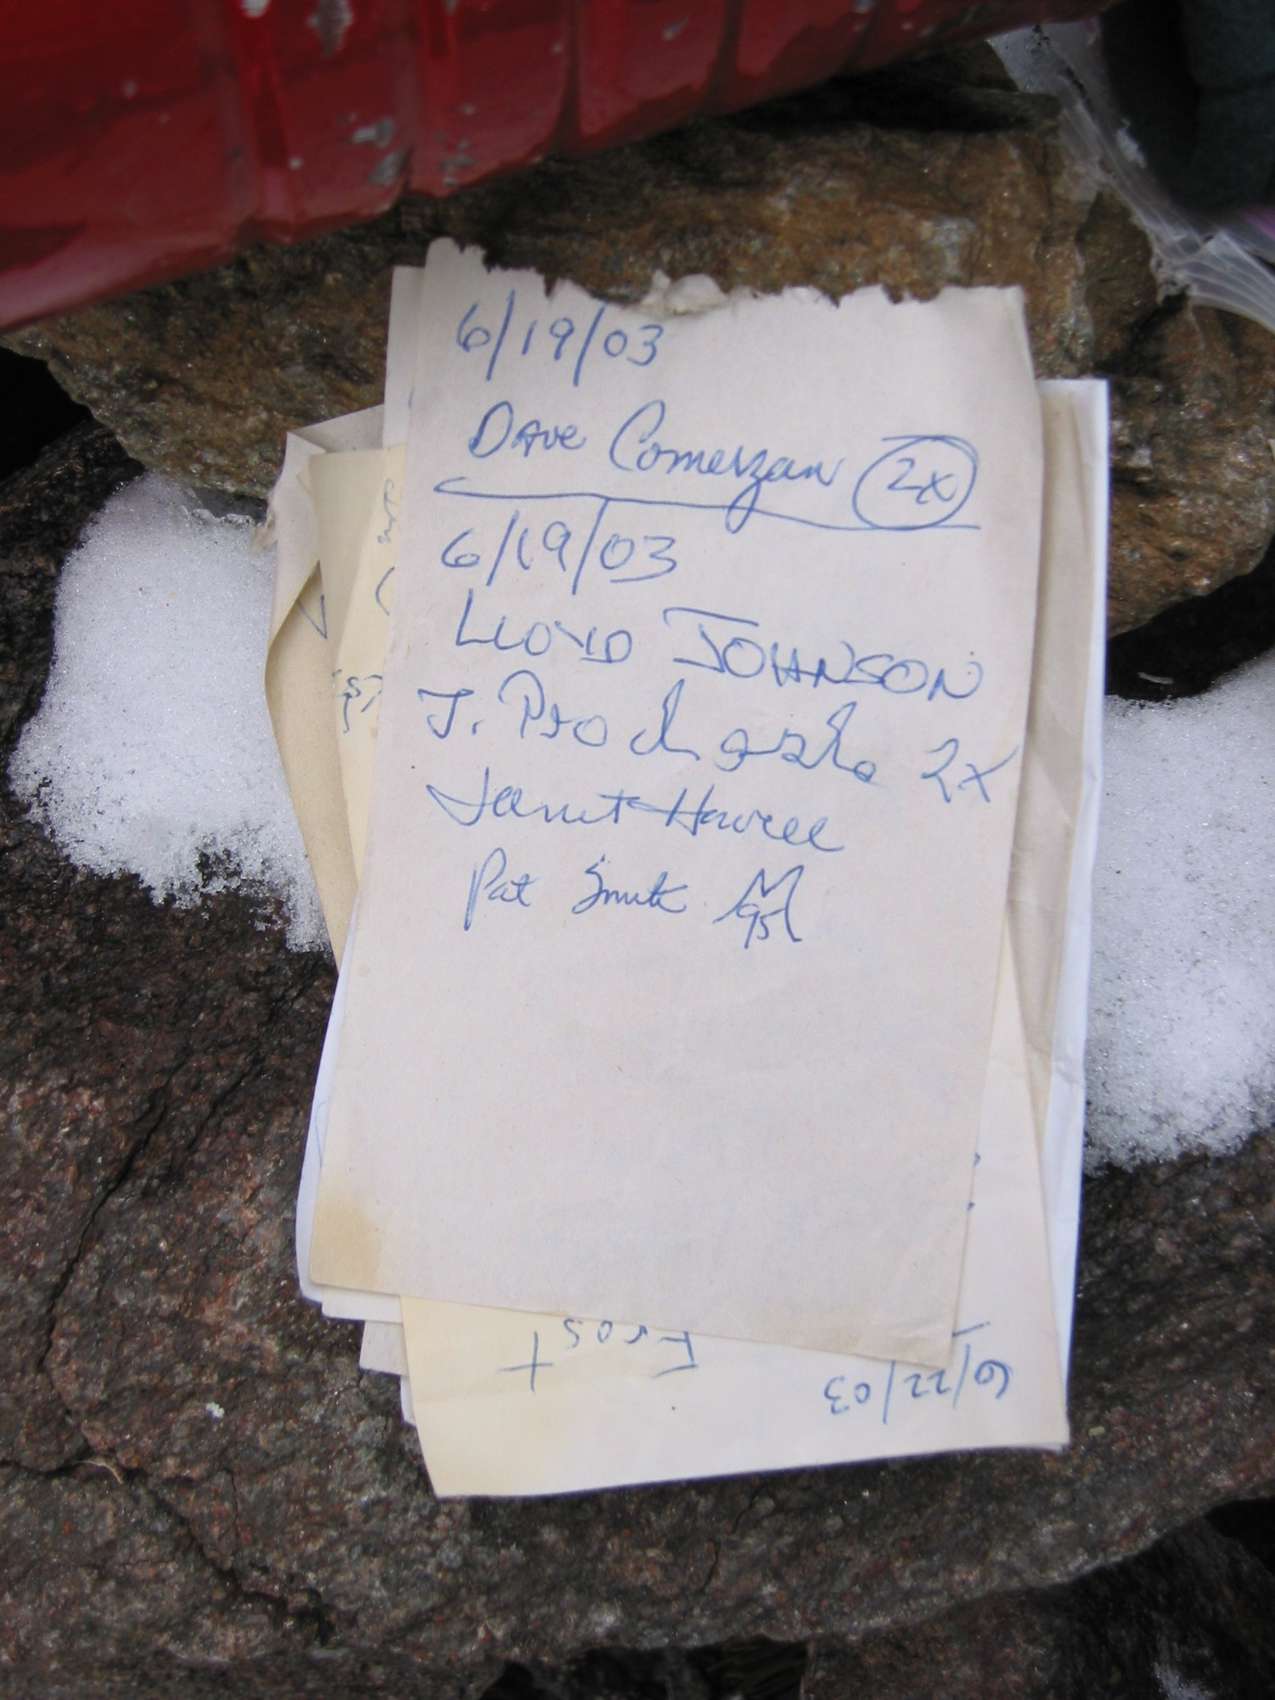 6/19/03
Dave Comerzan 2x
6/19/03
LLOYD JOHNSON
J. Prochaska 2x
Janet Howell
Pat Smith
6/22/03
Frost